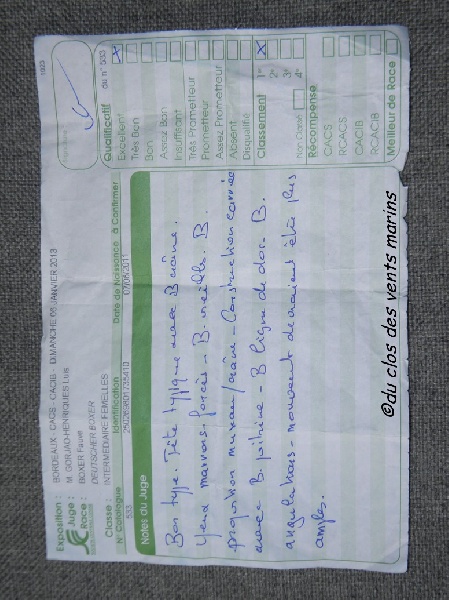 1023
Exposition : BORDEAUX - CACS - CACIB - DIMANCHE 06 JANVIER 2013
Juge : M GORJAO-HENRIQUES Luis
Race : BOXER Fauve
DEUTSCHER BOXER
Classe : INTERMEDIAIRE FEMELLES
N° Catalogue Identification Date de Naissance à Confirmer
533 07/08/2011
Notes du Juge
Bon type. Tête typique avec B crâne.
Yeux marrons foncés - B. oreilles. B.
proportion museau/crâne - Construction carrée
avec B. poitrine - B ligne de dos. B.
angulations - mouvement devraient être plus
amples.
Qualificatif du n° 533
Excellent X
Très Bon
Bon
Assez Bon
Insuffisant
Très Prometteur
Prometteur
Assez Prometteur
Absent
Disqualifié
Classement 1° X
2°
3°
Non Classé 4°
Récompense
CACS
RCACS
CACIB
RCACIB
Meilleur de Race
©du clos des vents marins